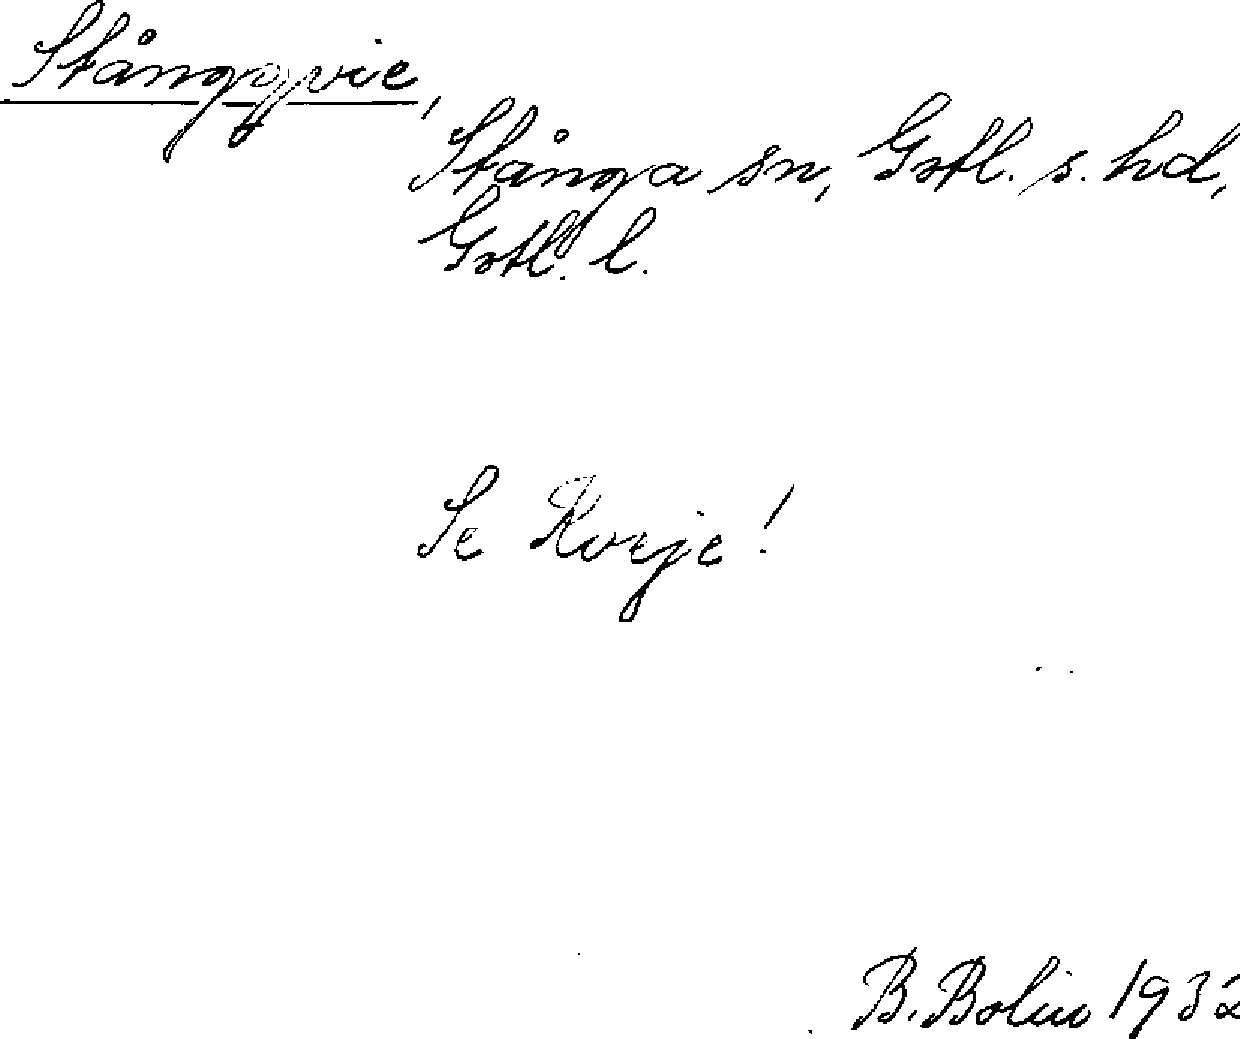 Stångqvie,
Stånga sn, Gotl. s. hd,
Gotl. l.
Se Kveje!
B. Bolin 1932